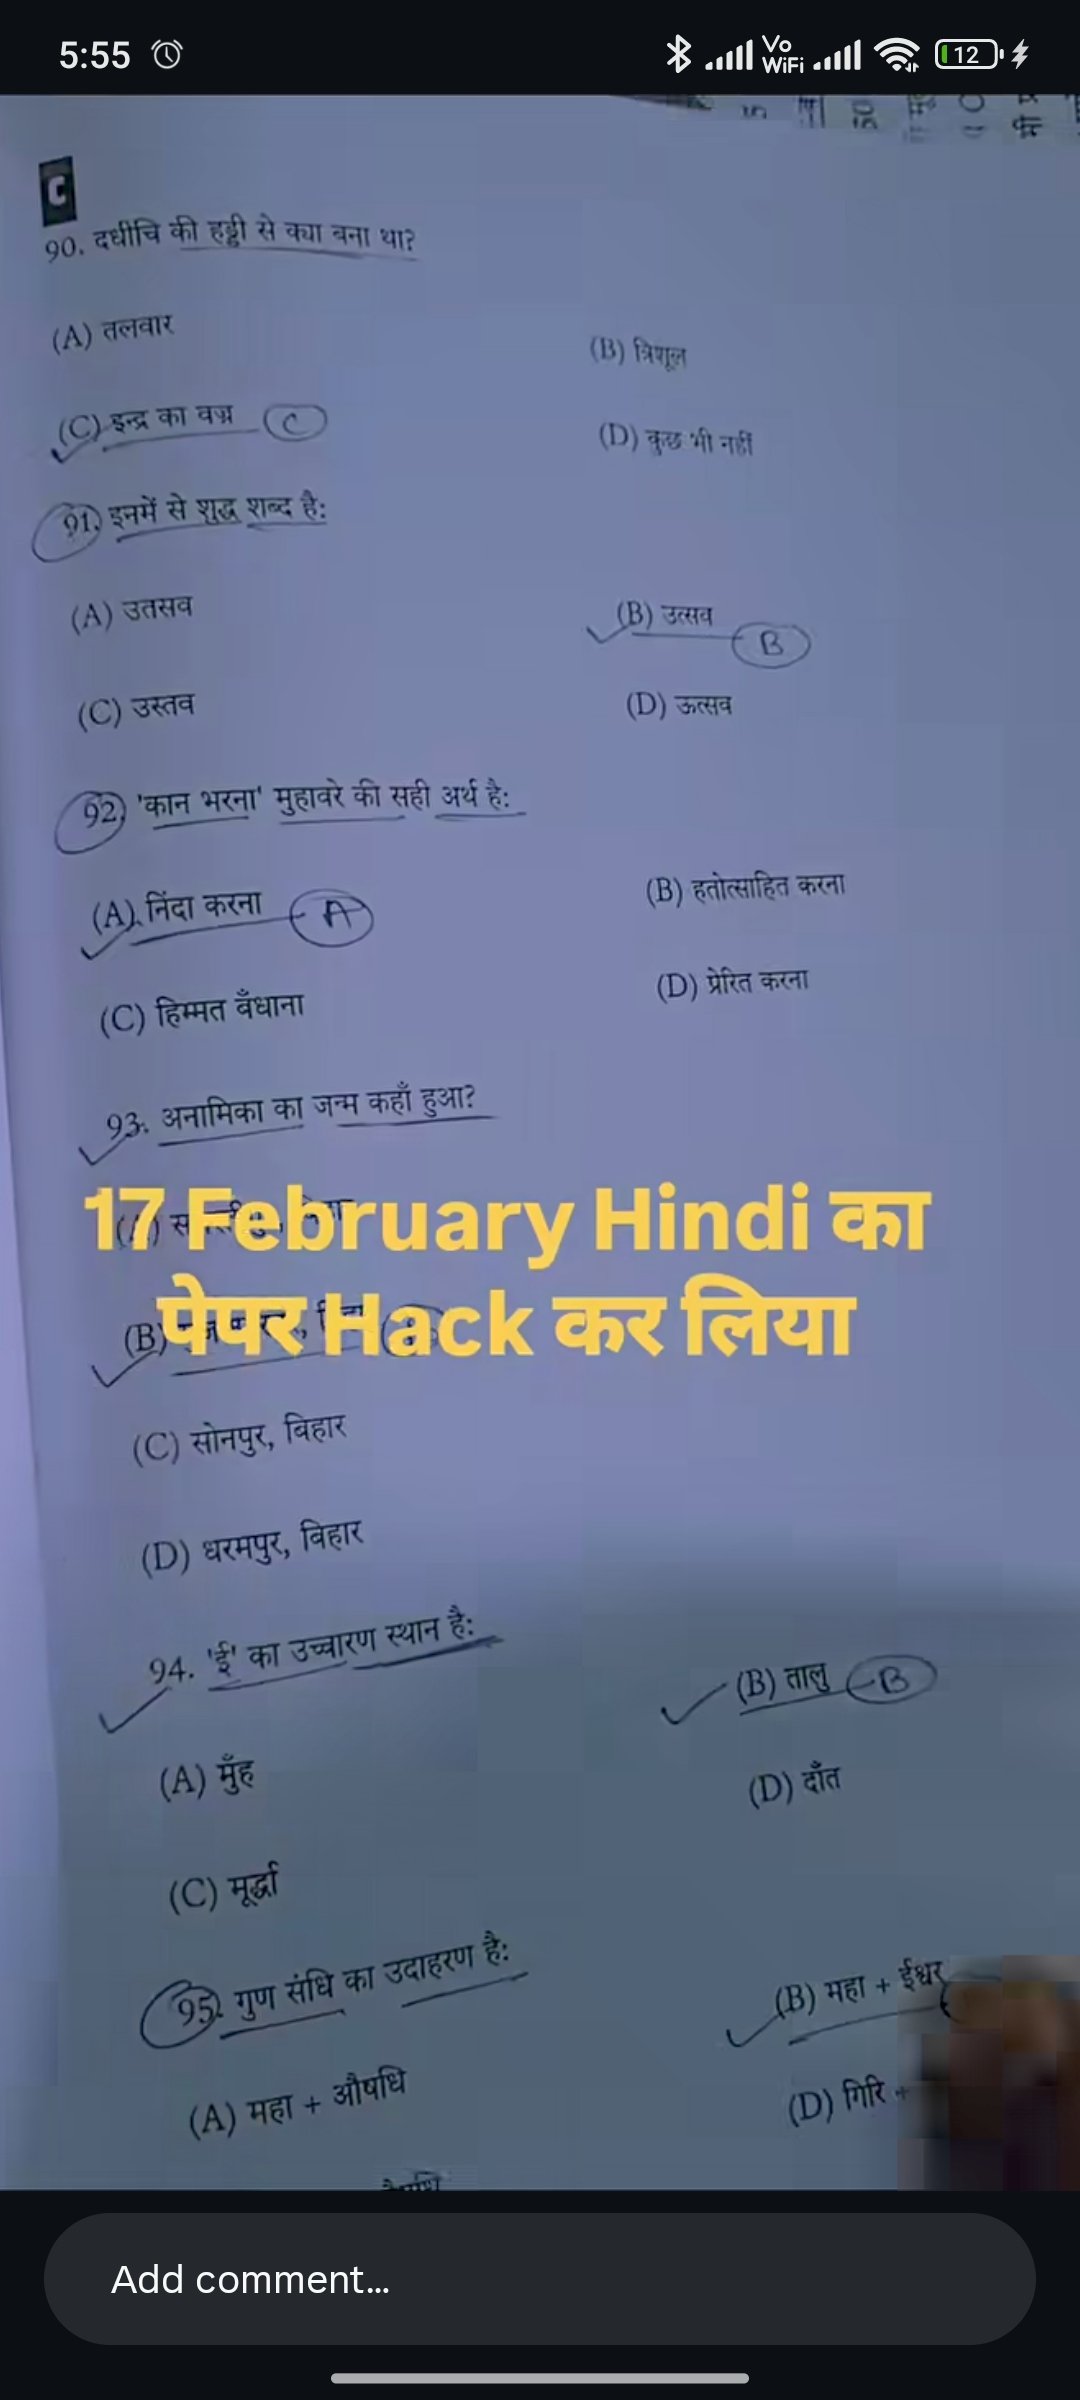 5:55
Vo
WiFi
12
C
90. दधीचि की हड्डी से क्या बना था?
(A) तलवार
(B) त्रिशूल
(C) इन्द्र का वज्र C
(D) कुछ भी नहीं
91. इनमें से शुद्ध शब्द है:
(A) उतसव
(B) उत्सव B
(C) उस्तव
(D) ऊत्सव
92. 'कान भरना' मुहावरे की सही अर्थ है:
(A) निंदा करना A
(B) हतोत्साहित करना
(C) हिम्मत बँधाना
(D) प्रेरित करना
93. अनामिका का जन्म कहाँ हुआ?
(A)
17 February Hindi का
पेपर Hack कर लिया
(B)
(C) सोनपुर, बिहार
(D) धरमपुर, बिहार
94. 'ई' का उच्चारण स्थान है:
(B) तालु B
(A) मुँह
(D) दाँत
(C) मूर्द्धा
95. गुण संधि का उदाहरण है:
(B) महा + ईश्वर
(A) महा + औषधि
(D) गिरि +
Add comment...